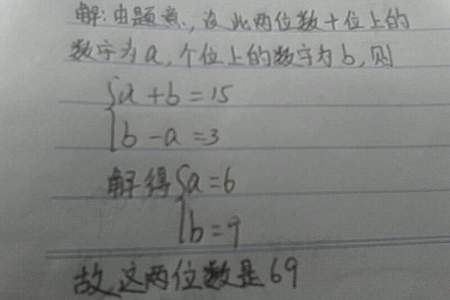 解:由题意,设此两位数十位上的
数字为a,个位上的数字为b,则
{a+b=15
b-a=3
解得{a=6
b=9
故这两位数是69